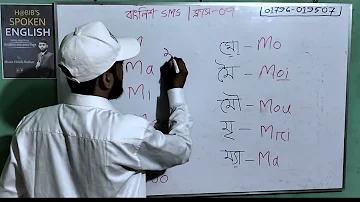 H@BIB'S
SPOKEN
ENGLISH
বাংলিশ SMS | ক্লাস-০৭
01796-019507
Ma
Mi
মো - Mo
মৈ - Moi
মৌ - Mou
মৃ - Mri
ম্যা - Ma